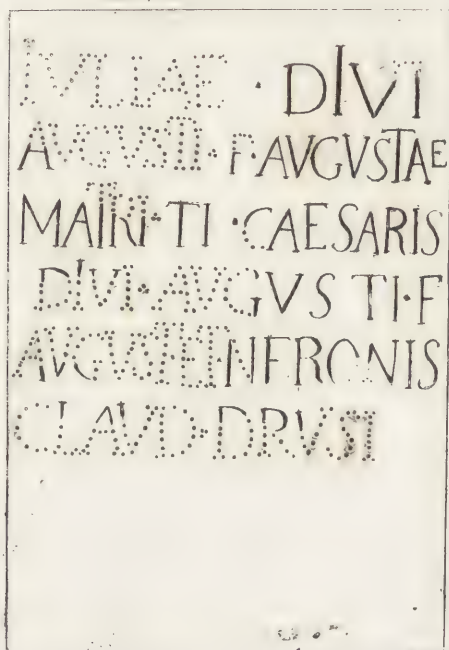 IVLIAE · DIVI
AVGVSTI · F · AVGVSTAE
MATRI · TI · CAESARIS
DIVI · AVGVSTI · F
AVGVSTI · ET NERONIS
CLAVD · DRVSI